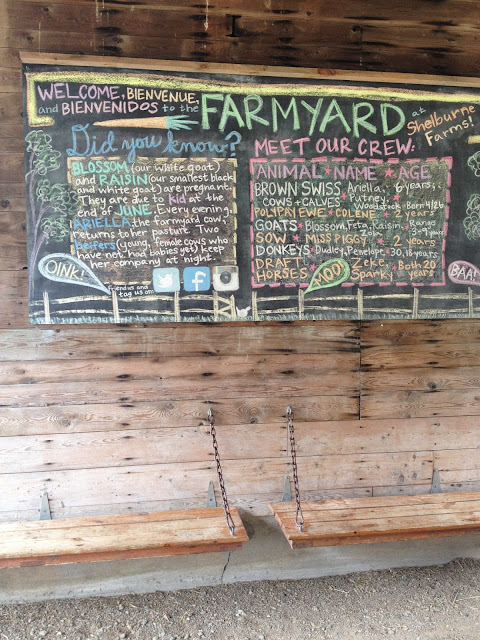 WELCOME, BIENVENUE,
and BIENVENIDOS to the
FARMYARD
at
Shelburne
Farms!
Did you know?
BLOSSOM (our white goat)
and RAISIN (our smallest black
and white goat) are pregnant.
They are due to kid at the
end of JUNE. Every evening,
ARIELLA, the farmyard cow,
returns to her pasture. Two
heifers (young, female cows who
have not had babies yet) keep
her company at night.
OINK!
friend us and
tag us on:
MEET OUR CREW:
ANIMAL ★ NAME ★ AGE
BROWN SWISS Ariella, 6 years,
COWS + CALVES Putney,
Woodstock Born 4/26
POLYPAY EWE ★ COLENE ★ 2 years
GOATS Blossom, Feta, Raisin, Range
Zoe 3-9 years
SOW ★ MISS PIGGY ★ 2 years
DONKEYS Dudley, Penelope 30, 18 years
DRAFT Zeke, Both 20
HORSES Sparky years
MOO!
BAA!